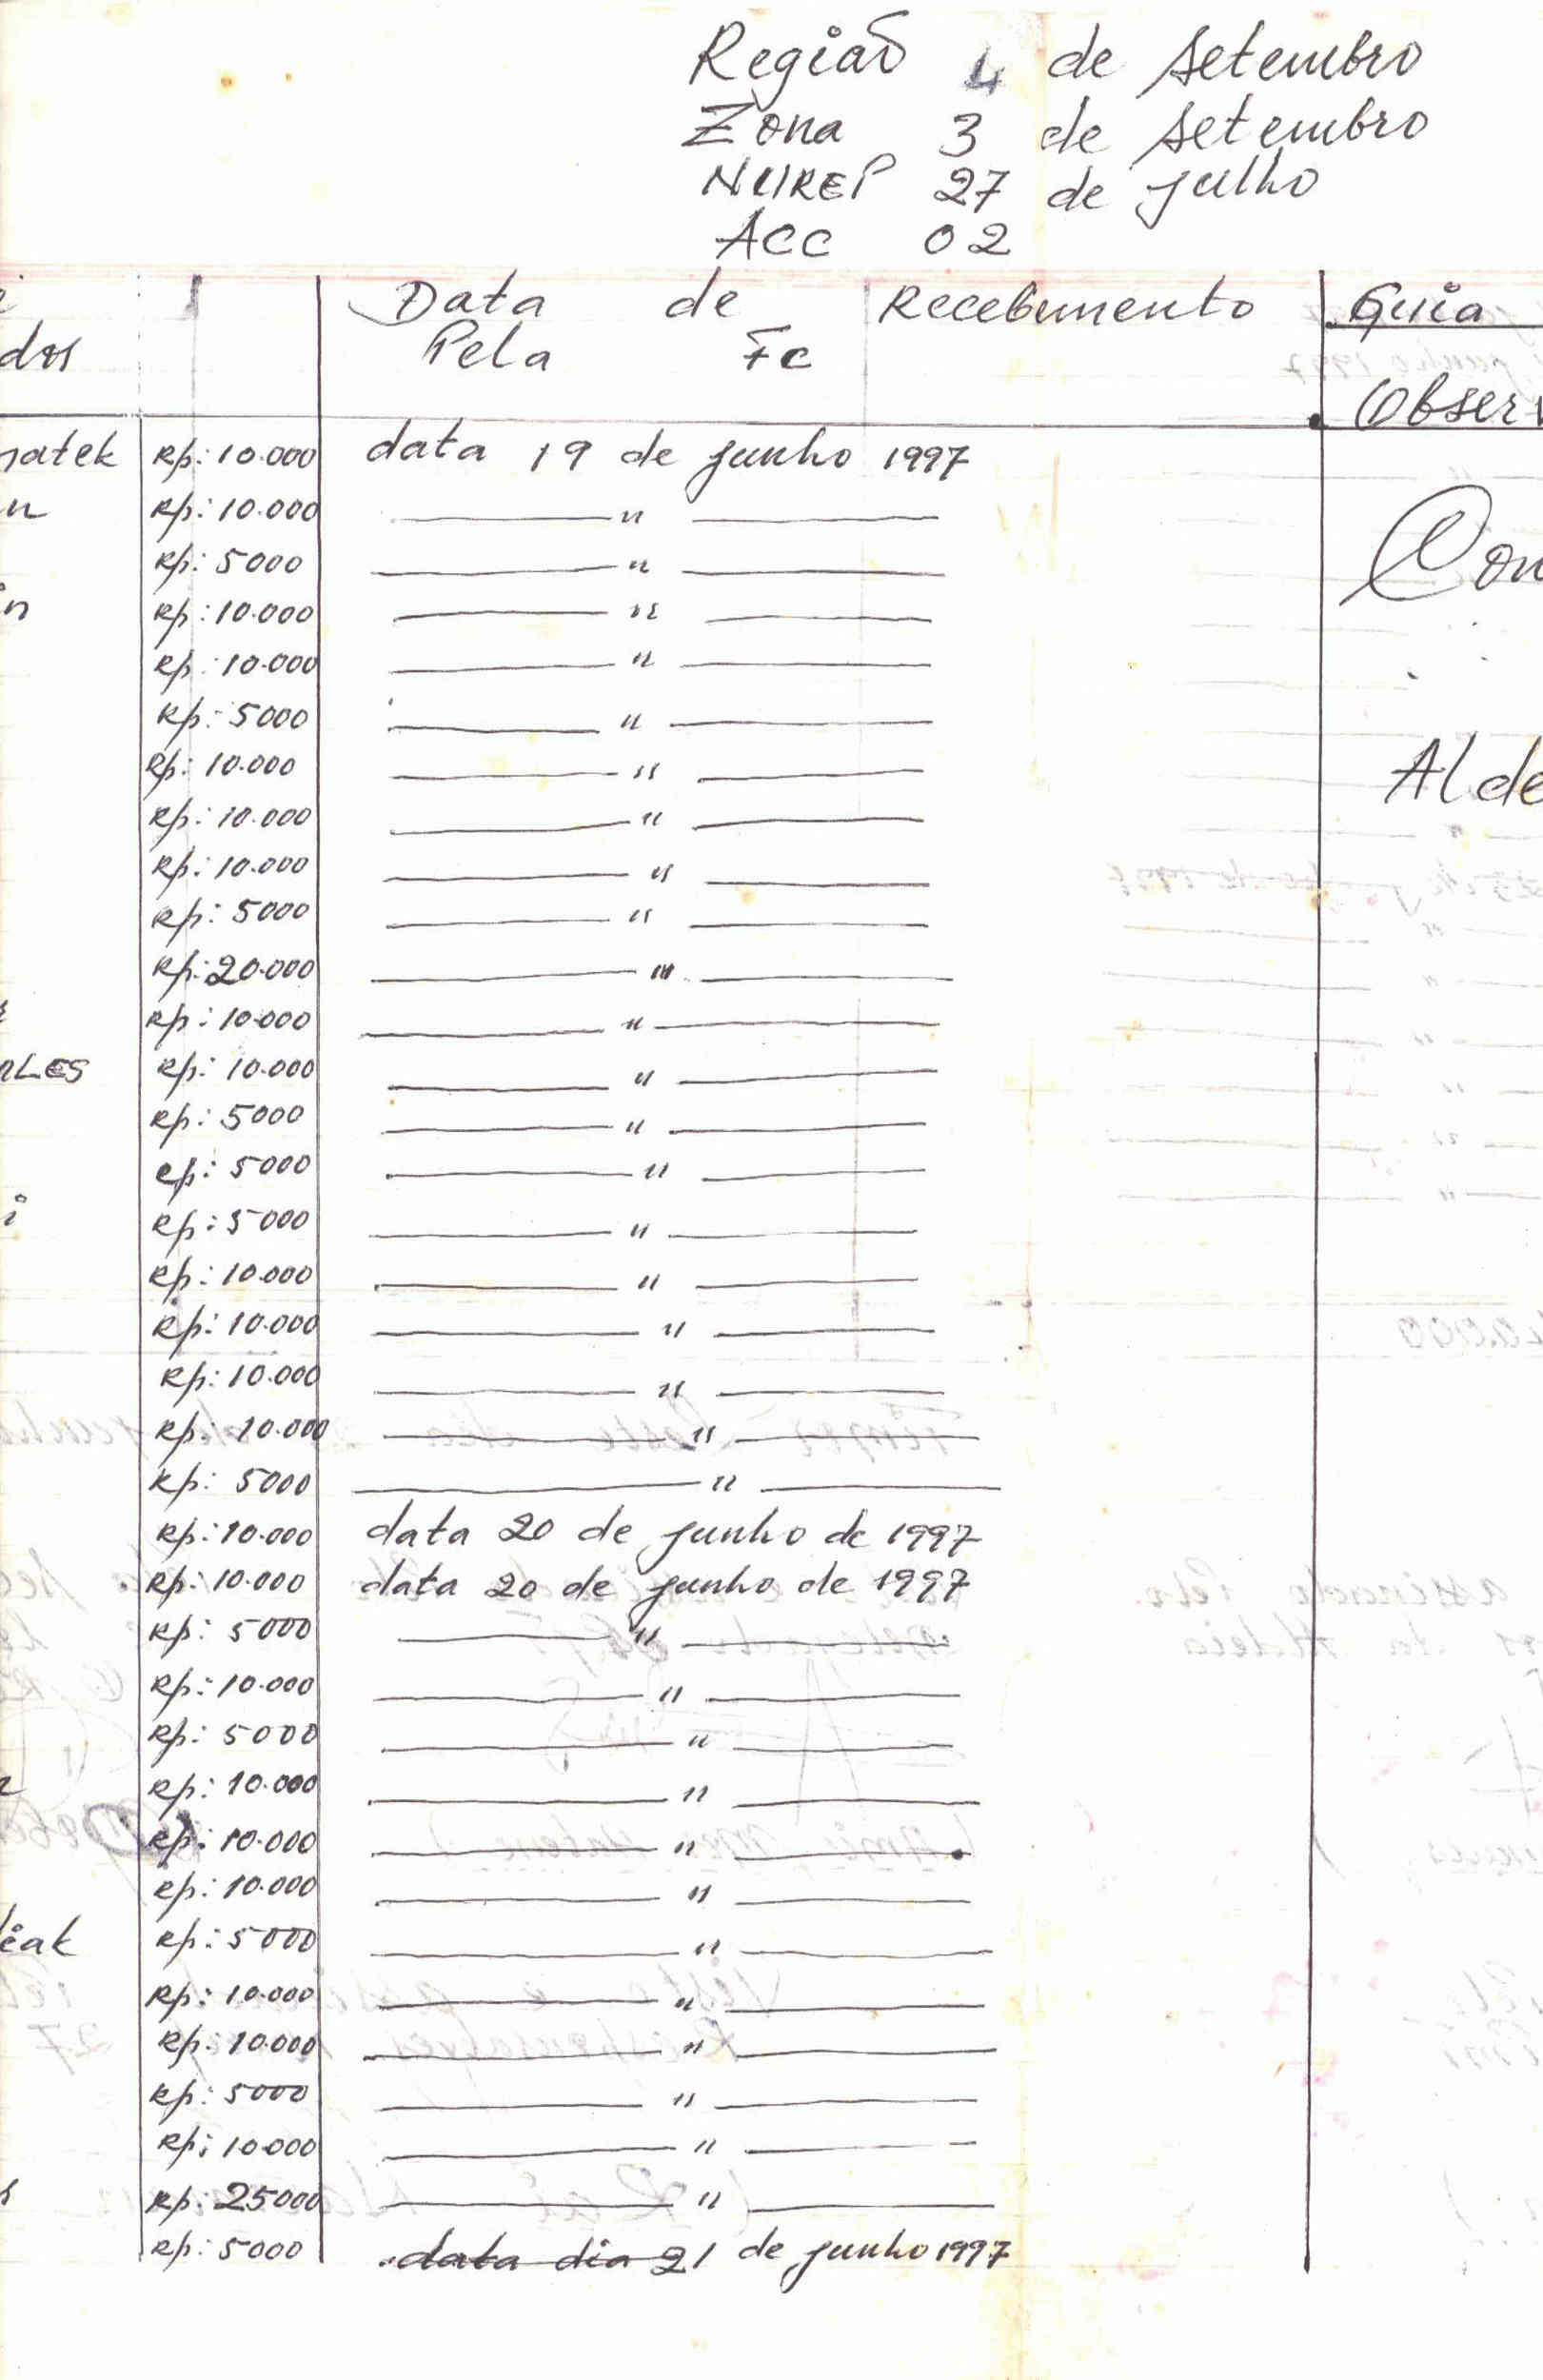 Região 4 de setembro
Zona 3 de setembro
NUREP 27 de julho
ACC 02
Data de Recebimento Guia
dos Pela Fc
Observ
natek Rp: 10.000 data 19 de junho 1997
n Rp: 10.000 "
Rp: 5000 "
in Rp: 10.000 "
Rp: 10.000 "
Rp: 5000 "
Rp: 10.000 "
Rp: 10.000 "
Rp: 10.000 "
Rp: 5000 "
Rp: 20.000 "
Rp: 10.000 "
ALES Rp: 10.000 "
Rp: 5000 "
Rp: 5000 "
i Rp: 5000 "
Rp: 10.000 "
Rp: 10.000 "
Rp: 10.000 "
Rp: 10.000 "
Rp: 5000 "
Rp: 10.000 data 20 de junho de 1997
Rp: 10.000 data 20 de junho de 1997
Rp: 5000 "
Rp: 10.000 "
Rp: 5000 "
Rp: 10.000 "
Rp: 10.000 "
Rp: 10.000 "
eak Rp: 5000 "
Rp: 10.000 "
Rp: 10.000 "
Rp: 5000 "
Rp: 10.000 "
Rp: 25000 "
Rp: 5000 data dia 21 de junho 1997
Con
Alde